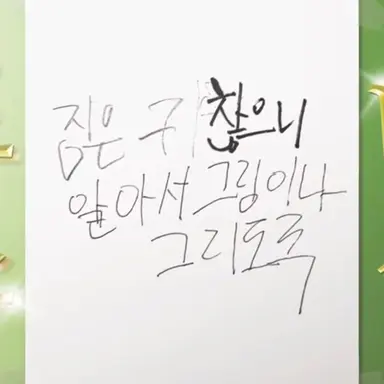 짐은 귀찮으니
알아서 그림이나
그리도록